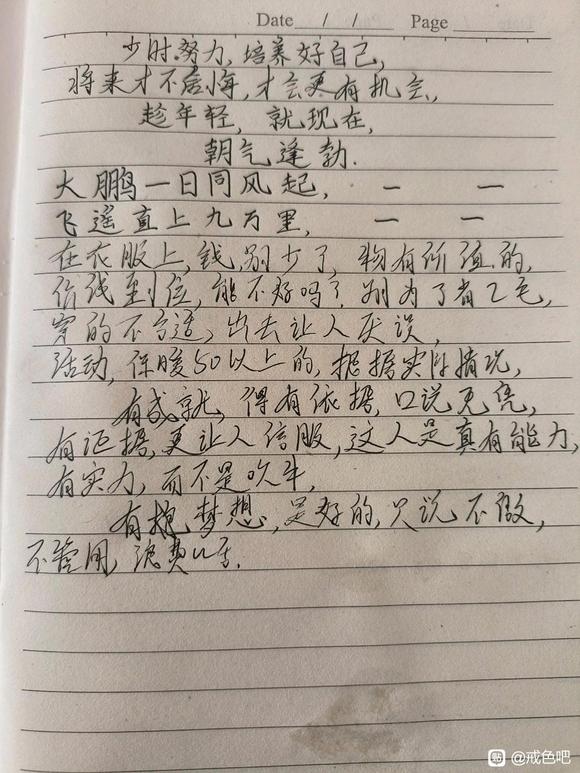 Date / / Page
少时努力,培养好自己,
将来才不后悔,才会更有机会,
趁年轻,就现在,
朝气逢勃.
大鹏一日同风起, — —
飞遥直上九万里, — —
在衣服上,钱别少了,物有所值的,
价钱到位,能不好吗?别为了省乙毛,
穿的不合适,出去让人厌误,
活动,保暖50以上的,据据实际情况,
有成就,得有依据,口说无凭,
有证据,更让人信服,这人是真有能力,
有实力,而不是吹牛,
有抱梦想,是好的,只说不做,
不管用,浪费
@戒色吧